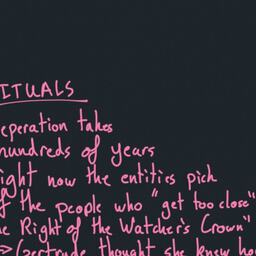 ITUALS
eperation takes
hundreds of years
ight now the entities pick
f the people who "get too close"
e Right of the Watcher's Crown"
(gertrude thought she knew ho